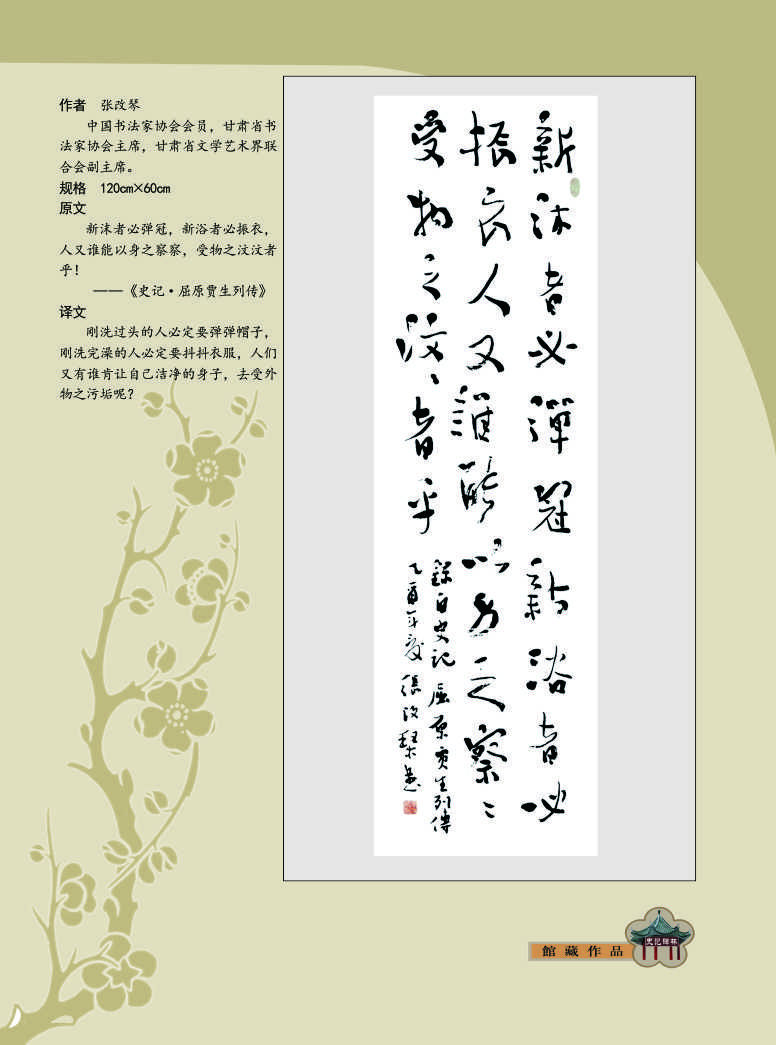 作者　张改琴
中国书法家协会会员，甘肃省书
法家协会主席，甘肃省文学艺术界联
合会副主席。
规格　120cm×60cm
原文
新沫者必弹冠，新浴者必振衣，
人又谁能以身之察察，受物之汶汶者
乎！
——《史记·屈原贾生列传》
译文
刚洗过头的人必定要弹弹帽子，
刚洗完澡的人必定要抖抖衣服，人们
又有谁肯让自己洁净的身子，去受外
物之污垢呢？
新沐者必彈冠新浴者必
振衣人又誰能以身之察〻
受物之汶〻者乎
錄自史记屈原贾生列傳
乙酉年夏張改琴书
館藏作品
史记碑林